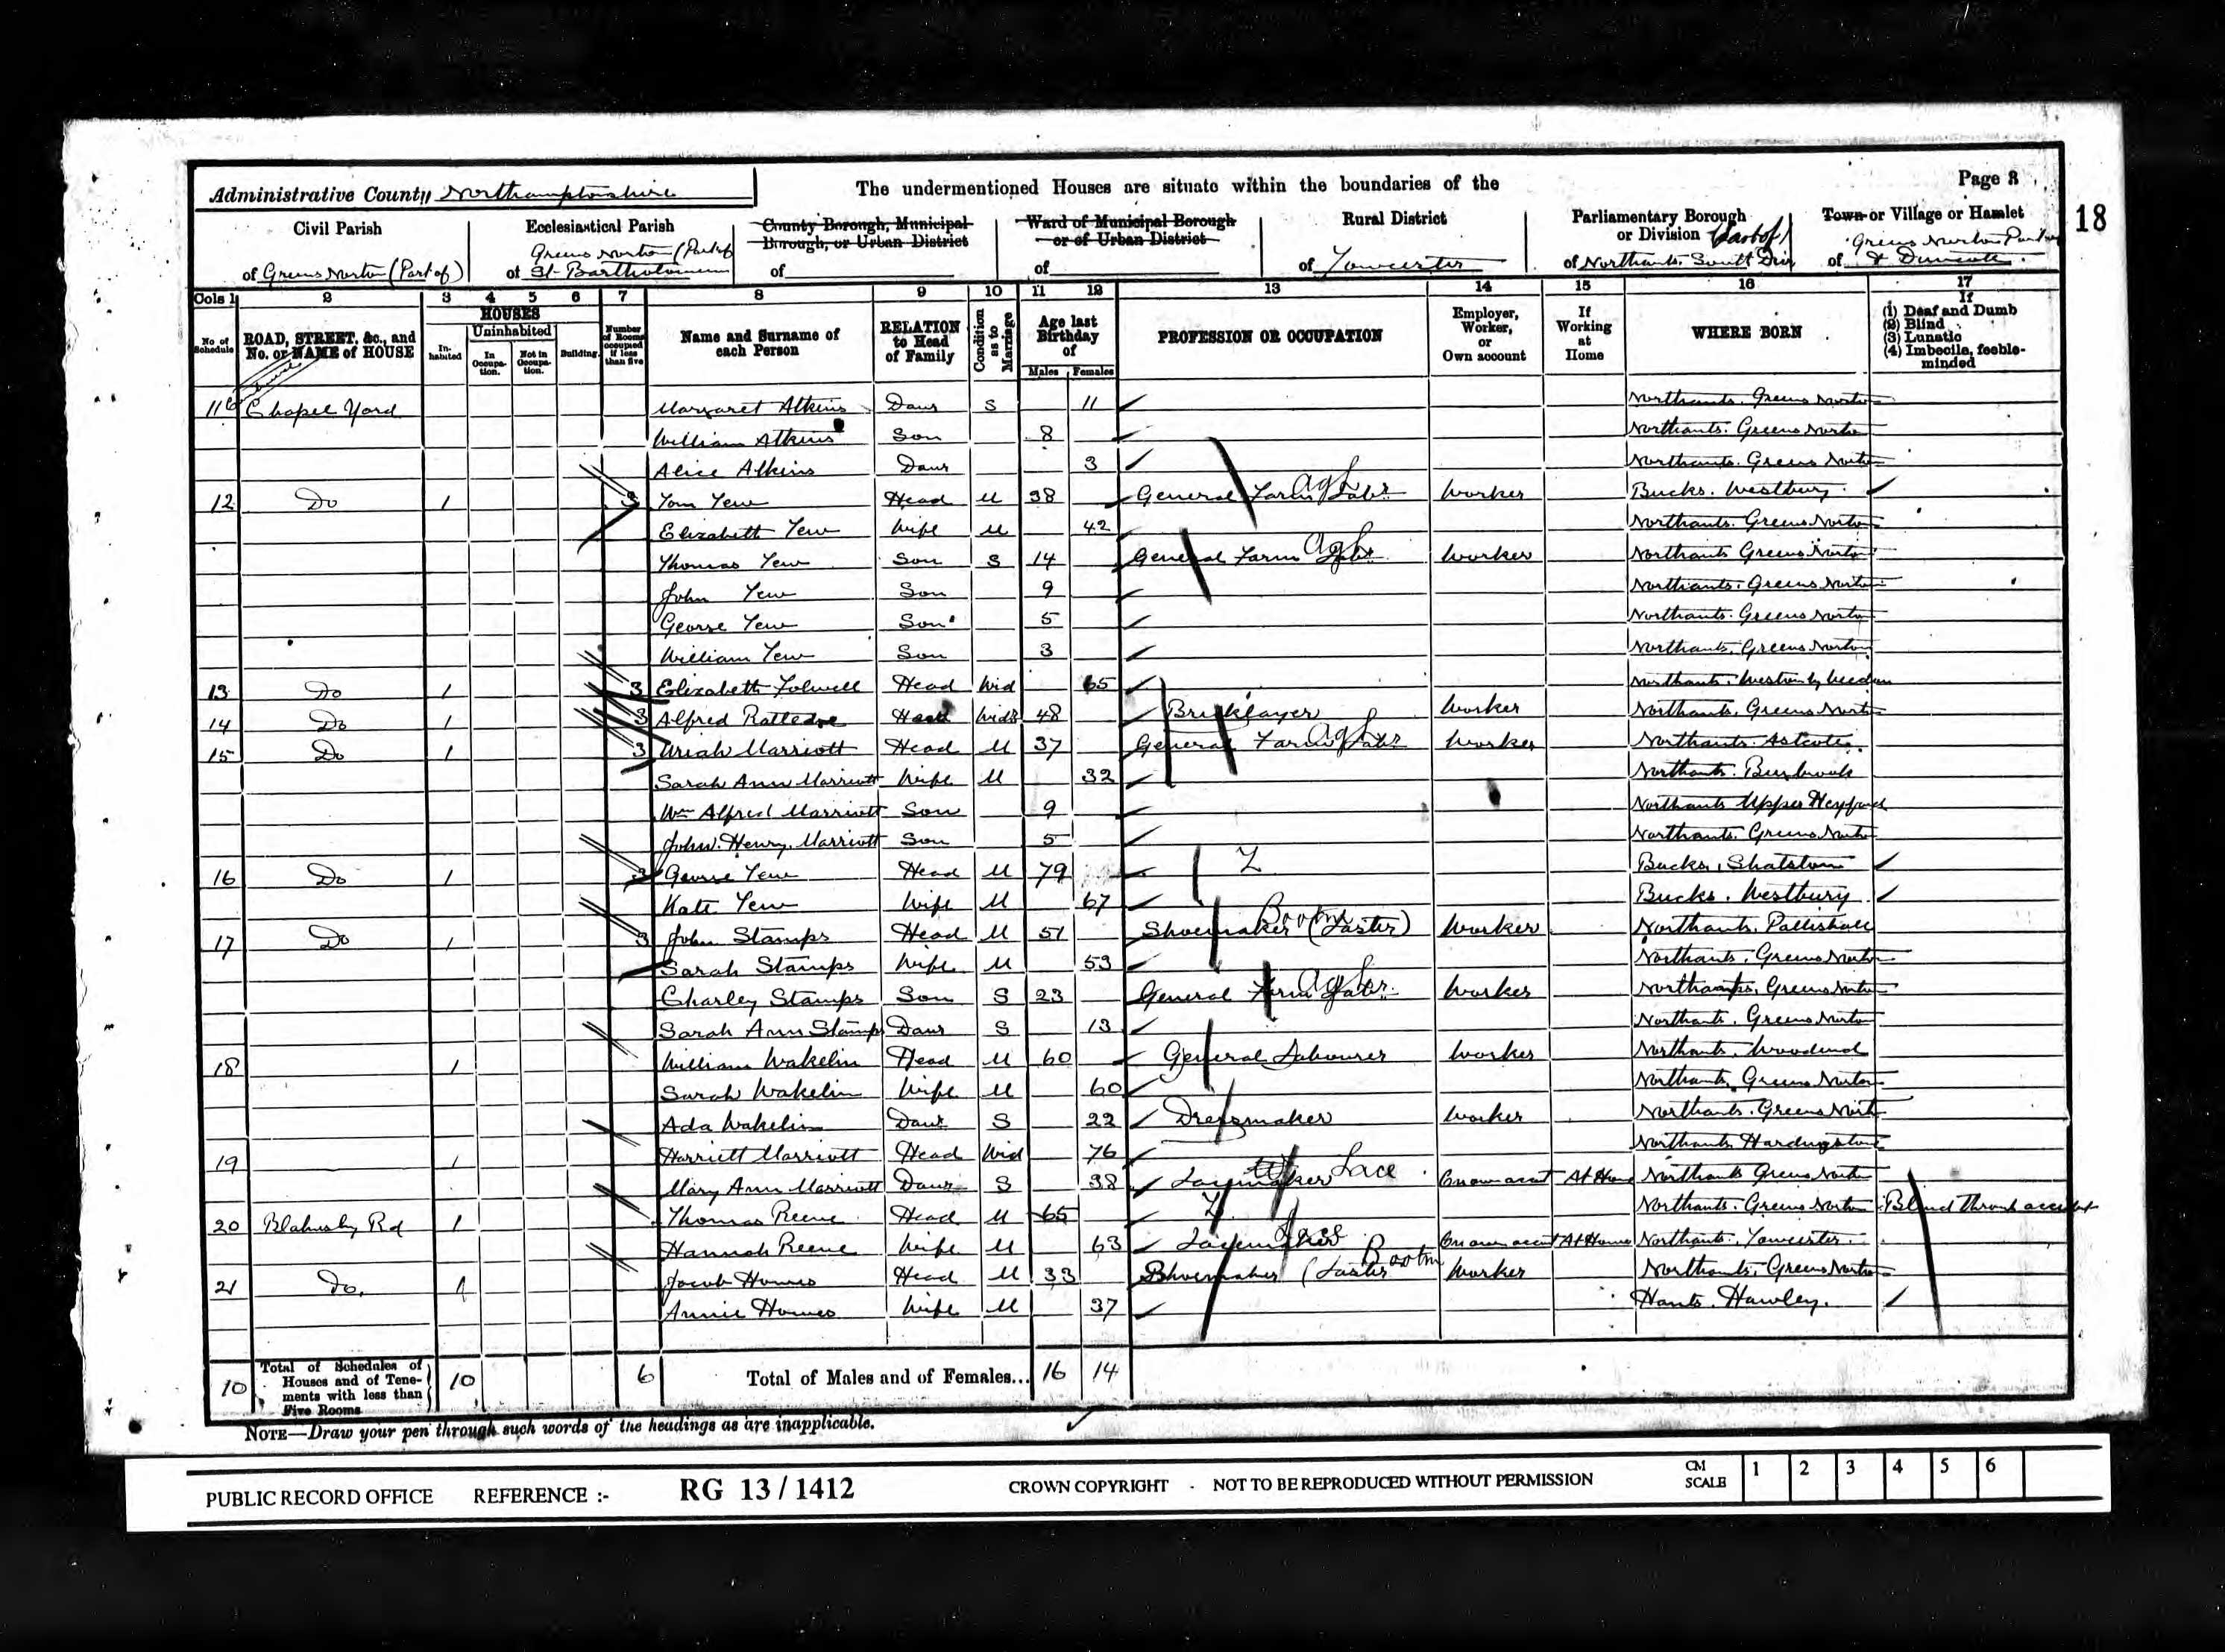 Administrative County Northamptonshire The undermentioned Houses are situate within the boundaries of the Page 3
18
Civil Parish Ecclesiastical Parish County Borough, Municipal Borough, or Urban District Ward of Municipal Borough or of Urban District Rural District Parliamentary Borough or Division (Part of) Town or Village or Hamlet
of Greens Norton (Part of) Greens Norton (Part of of St. Bartholomew of of of Towcester of Northants. South Div of Greens Norton Part &
Cols 1 2 3 4 5 6 7 8 9 10 11 12 13 14 15 16 17
No of Schedule ROAD, STREET, &c., and No. or NAME of HOUSE HOUSES Inhabited Uninhabited In Occupation. Not in Occupation. Building. Number of Rooms occupied if less than five Name and Surname of each Person RELATION to Head of Family Condition as to Marriage Age last Birthday of Males Females PROFESSION OR OCCUPATION Employer, Worker, or Own account If Working at Home WHERE BORN If (1) Deaf and Dumb (2) Blind (3) Lunatic (4) Imbecile, feeble-minded
11 Chapel Yard Margaret Atkins Daur S 11 Northants. Greens Norton
William Atkins Son 8 Northants. Greens Norton
Alice Atkins Daur 3 Northants. Greens Norton
12 Do 1 3 Tom Yew Head M 38 General Farm Labr Ag L Worker Bucks. Westbury
Elizabeth Yew Wife M 42 Northants. Greens Norton
Thomas Yew Son S 14 General Farm Labr Ag L Worker Northants Greens Norton
John Yew Son 9 Northants. Greens Norton
George Yew Son 5 Northants. Greens Norton
William Yew Son 3 Northants. Greens Norton
13 Do 1 3 Elizabeth Folwell Head Wid 65 Northants. Weston by Weedon
14 Do 1 3 Alfred Ratledge Head Widr 48 Bricklayer Worker Northants. Greens Norton
15 Do 1 3 Uriah Marriott Head M 37 General Farm Labr Ag L Worker Northants. Astcote
Sarah Ann Marriott Wife M 32 Northants. Bugbrook
Wm Alfred Marriott Son 9 Northants Upper Heyford
John. Henry. Marriott Son 5 Northants. Greens Norton
16 Do 1 3 George Yew Head M 79 Bucks, Shalstone
Kate Yew Wife M 67 Bucks. Westbury
17 Do 1 3 John Stamps Head M 51 Shoemaker (Laster) Boots Worker Northants. Pattishall
Sarah Stamps Wife M 53 Northants. Greens Norton
Charley Stamps Son S 23 General Farm Labr. Ag L Worker Northants. Greens Norton
Sarah Ann Stamps Daur S 13 Northants. Greens Norton
18 1 William Wakelin Head M 60 General Labourer Worker Northants. Woodend
Sarah Wakelin Wife M 60 Northants. Greens Norton
Ada Wakelin Daur S 22 Dressmaker Worker Northants. Greens Norton
19 1 Harriett Marriott Head Wid 76 Northants Hardingstone
Mary Ann Marriott Daur S 38 Lacemaker Lace On own acct At Home Northants Greens Norton
20 Blakesley Rd 1 Thomas Reeve Head M 65 Northants. Greens Norton Blind through accident
Hannah Reeve Wife M 63 Lacemaker On own acct At Home Northants. Towcester
21 Do. 1 Jacob Howes Head M 33 Shoemaker (Laster Boots Worker Northants. Greens Norton
Annie Howes Wife M 37 Hants. Hawley.
10 Total of Schedules of Houses and of Tenements with less than Five Rooms 10 6 Total of Males and of Females... 16 14
NOTE—Draw your pen through such words of the headings as are inapplicable.
PUBLIC RECORD OFFICE REFERENCE :- RG 13 / 1412 CROWN COPYRIGHT - NOT TO BE REPRODUCED WITHOUT PERMISSION CM SCALE 1 2 3 4 5 6